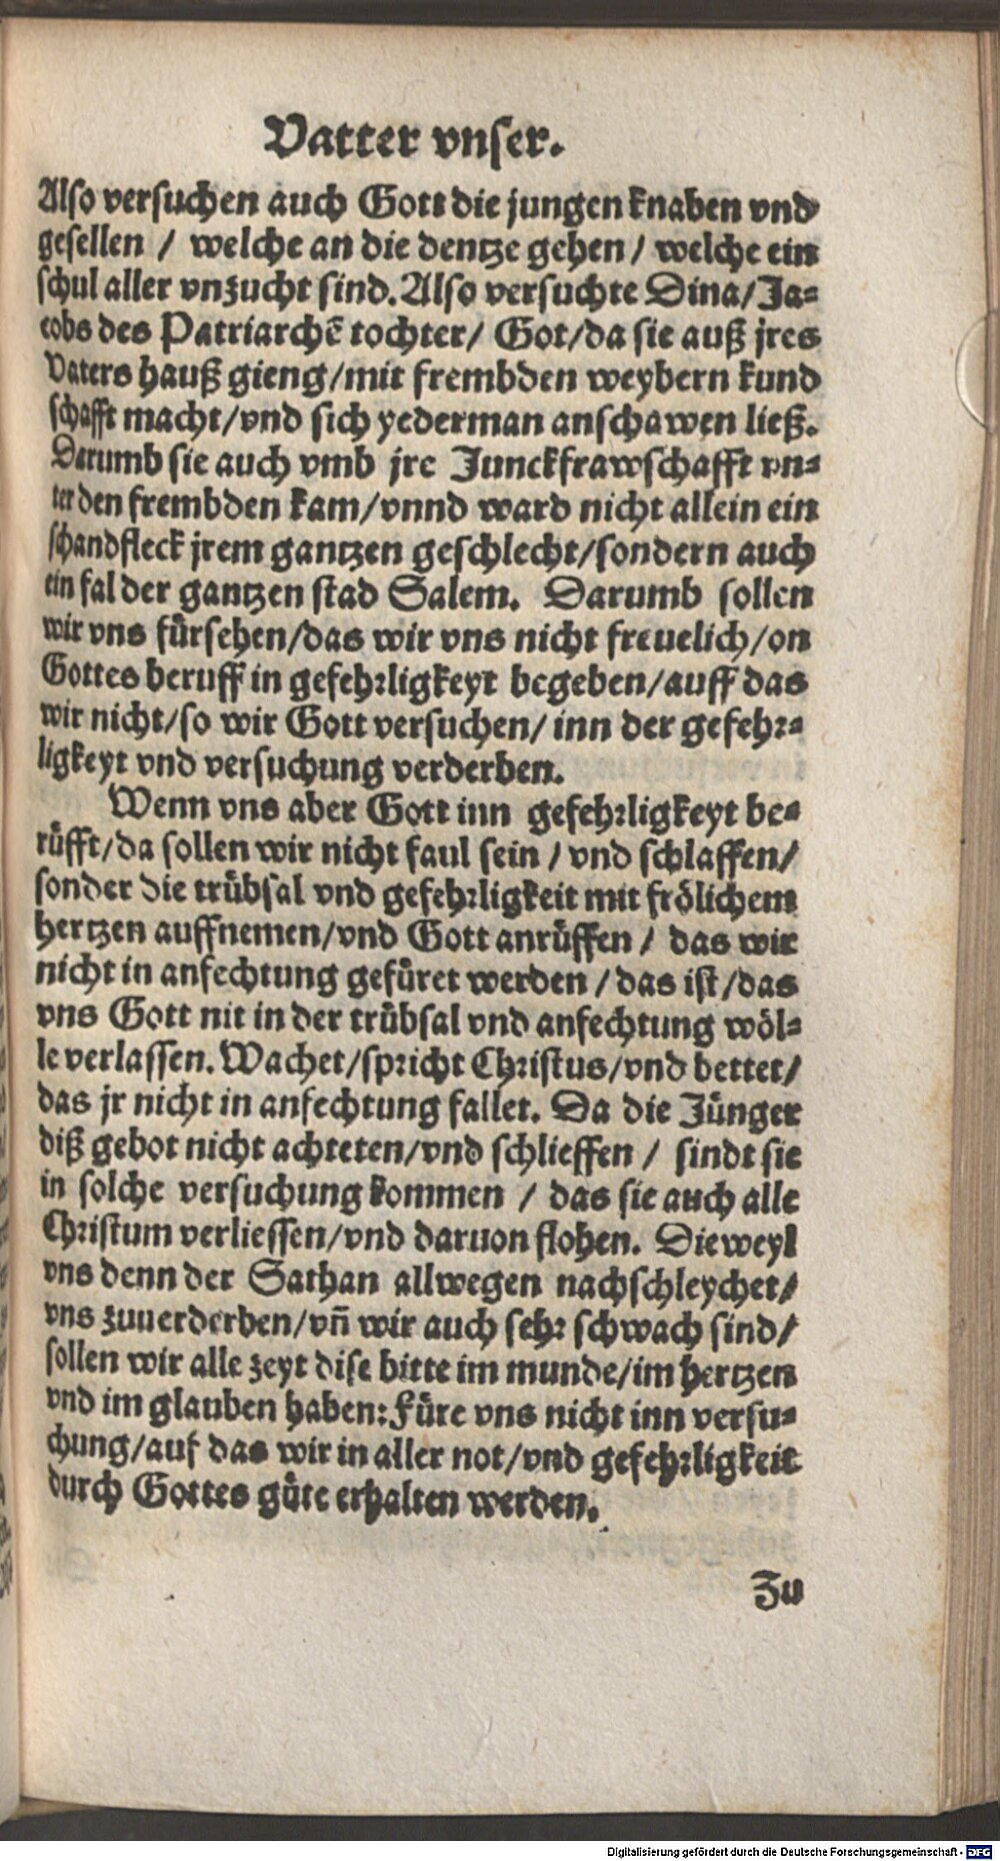 Vatter vnser.
Also versuchen auch Gott die jungen knaben vnd
gesellen / welche an die dentze gehen / welche ein
schul aller vnzucht sind. Also versuchte Dina / Ja-
cobs des Patriarchē tochter / Got / da sie auß jres
Vaters hauß gieng / mit frembden weybern kund
schafft macht / vnd sich yederman anschawen ließ.
Darumb sie auch vmb jre Junckfrawschafft vn-
ter den frembden kam / vnnd ward nicht allein ein
schandfleck jrem gantzen geschlecht / sondern auch
ein fal der gantzen stad Salem. Darumb sollen
wir vns fürsehen / das wir vns nicht freuelich / on
Gottes beruff in gefehrligkeyt begeben / auff das
wir nicht / so wir Gott versuchen / inn der gefehr-
ligkeyt vnd versuchung verderben.
Wenn vns aber Gott inn gefehrligkeyt be-
rüfft / da sollen wir nicht faul sein / vnd schlaffen /
sonder die trübsal vnd gefehrligkeit mit frölichem
hertzen auffnemen / vnd Gott anrüffen / das wir
nicht in anfechtung gefüret werden / das ist / das
vns Gott nit in der trübsal vnd anfechtung wöl-
le verlassen. Wachet / spricht Christus / vnd bettet /
das jr nicht in anfechtung fallet. Da die Jünger
diß gebot nicht achteten / vnd schlieffen / sindt sie
in solche versuchung kommen / das sie auch alle
Christum verliessen / vnd daruon flohen. Dieweyl
vns denn der Sathan allwegen nachschleychet /
vns zuuerderben / vñ wir auch sehr schwach sind /
sollen wir alle zeyt dise bitte im munde / im hertzen
vnd im glauben haben: Füre vns nicht inn versu-
chung / auf das wir in aller not / vnd gefehrligkeit
durch Gottes güte erhalten werden.
Zu
Digitalisierung gefördert durch die Deutsche Forschungsgemeinschaft - DFG